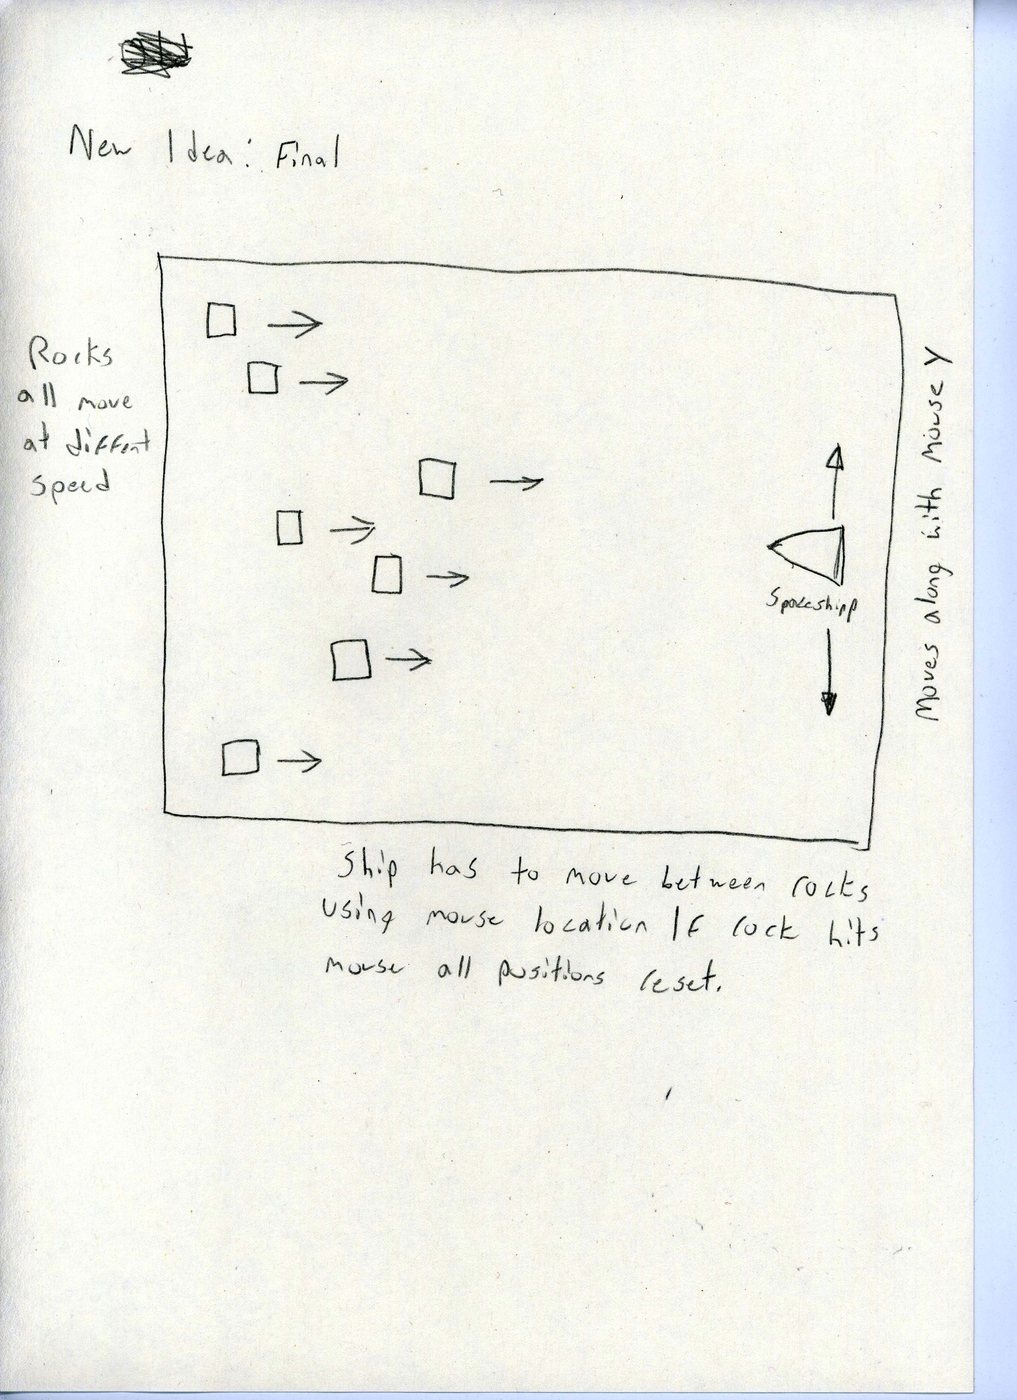 New Idea: Final
Rocks
all move
at diffent
speed
Spaceshipp
Moves along with Mouse Y
Ship has to move between rocks
using mouse location If rock hits
mouse all positions reset.